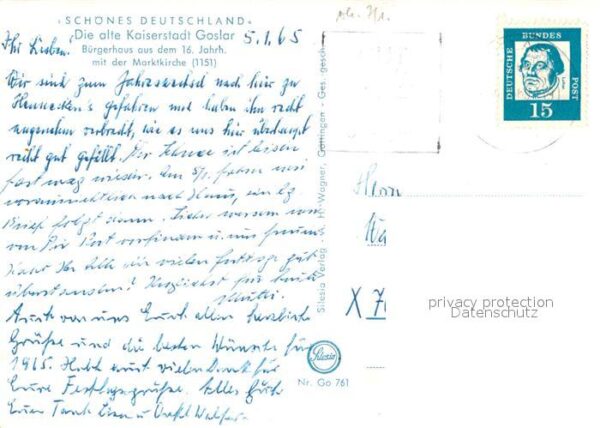 "SCHÖNES DEUTSCHLAND"
Die alte Kaiserstadt Goslar
Bürgerhaus aus dem 16. Jahrh.
mit der Marktkirche (1151)
5.1.65
Ihr Lieben!
Wir sind zum Jahreswechsel nach hier zu
Hennecken's gefahren und haben ihn recht
angenehm verbracht, wie es uns hier überhaupt
recht gut gefällt. Der Schnee ist leider
fast weg wieder. Am 8/1. fahren wir
voraussichtlich nach Haus, ein
Brief folgt dann. Sicher werden wir
von Dir Post vorfinden u. uns freuen
Habt Ihr alle die vielen Festtage gut
überstanden? Herzlichst für heute
Mutti.
Auch von uns Euch allen herzliche
Grüße und die besten Wünsche für
1965. Habt auch vielen Dank für
Eure Festtagsgrüße. Alles Gute
Eure Tante u. Onkel Walter.
Silesia Verlag - A. H. Wagner, Göttingen - Ges. gesch.
Silesia
Nr. Go 761
DEUTSCHE BUNDESPOST
15
Herrn
X 7
privacy protection
Datenschutz